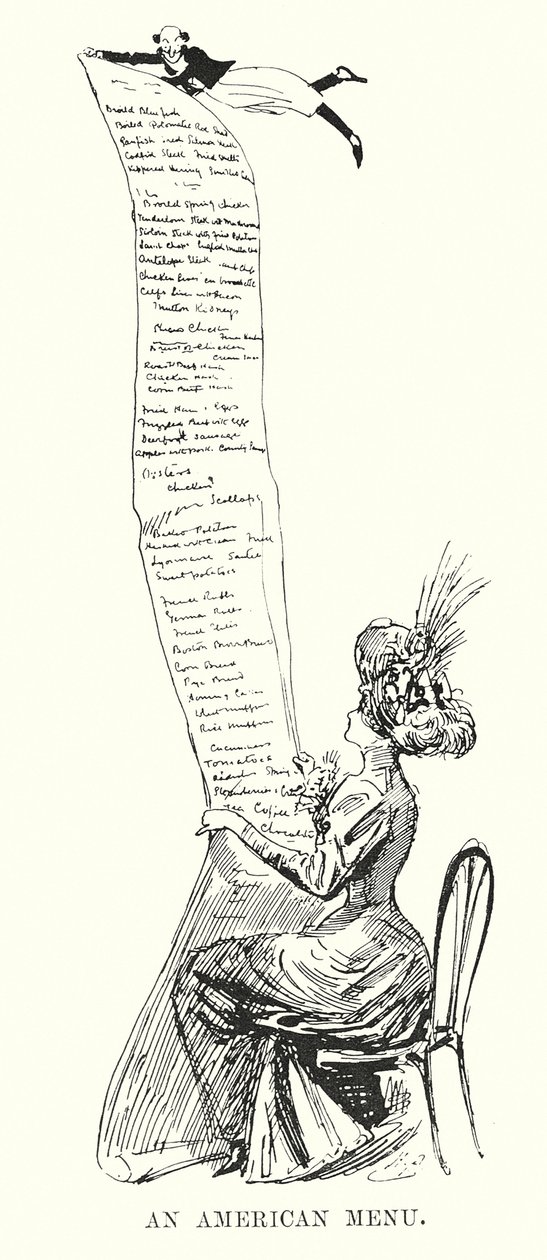 Broild Bluefish
Boiled Potomatic Red Shad
Panfish Fried Salmon Steak
Codfish Steak Fried Smelts
Kippered Herring Smelled
Broild Spring Chicken
Tenderloin Steak wt Mushrooms
Sirloin Steak with Fried Potatoes
Lamb Chops English Mutton Chop
Antelope Steak and Chip
Chicken livers en brochette
Calfs Liver wt Bacon
Mutton Kidneys
Chicken
of Chicken
Cream
Roast Beef Hash
Chicken Hash
Corn Beef Hash
Fried Ham & Eggs
Frizzled Beef wt Eggs
Deerfoot Sausage
Apples wt Pork. Country
Oysters
Chicken
Scollops
Baked Potatoes
Hashed wt Cream Fried
Lyonnaise Sautee
Sweet potatoes
French Rolls
Vienna Rolls
French
Boston Brown Bread
Corn Bread
Rye Bread
Hominy Cakes
Wheat muffins
Rice Muffins
Cucumbers
Tomatoes
Radish Spring
Strawberries & Cream
Tea Coffee
Chocolate
AN AMERICAN MENU.